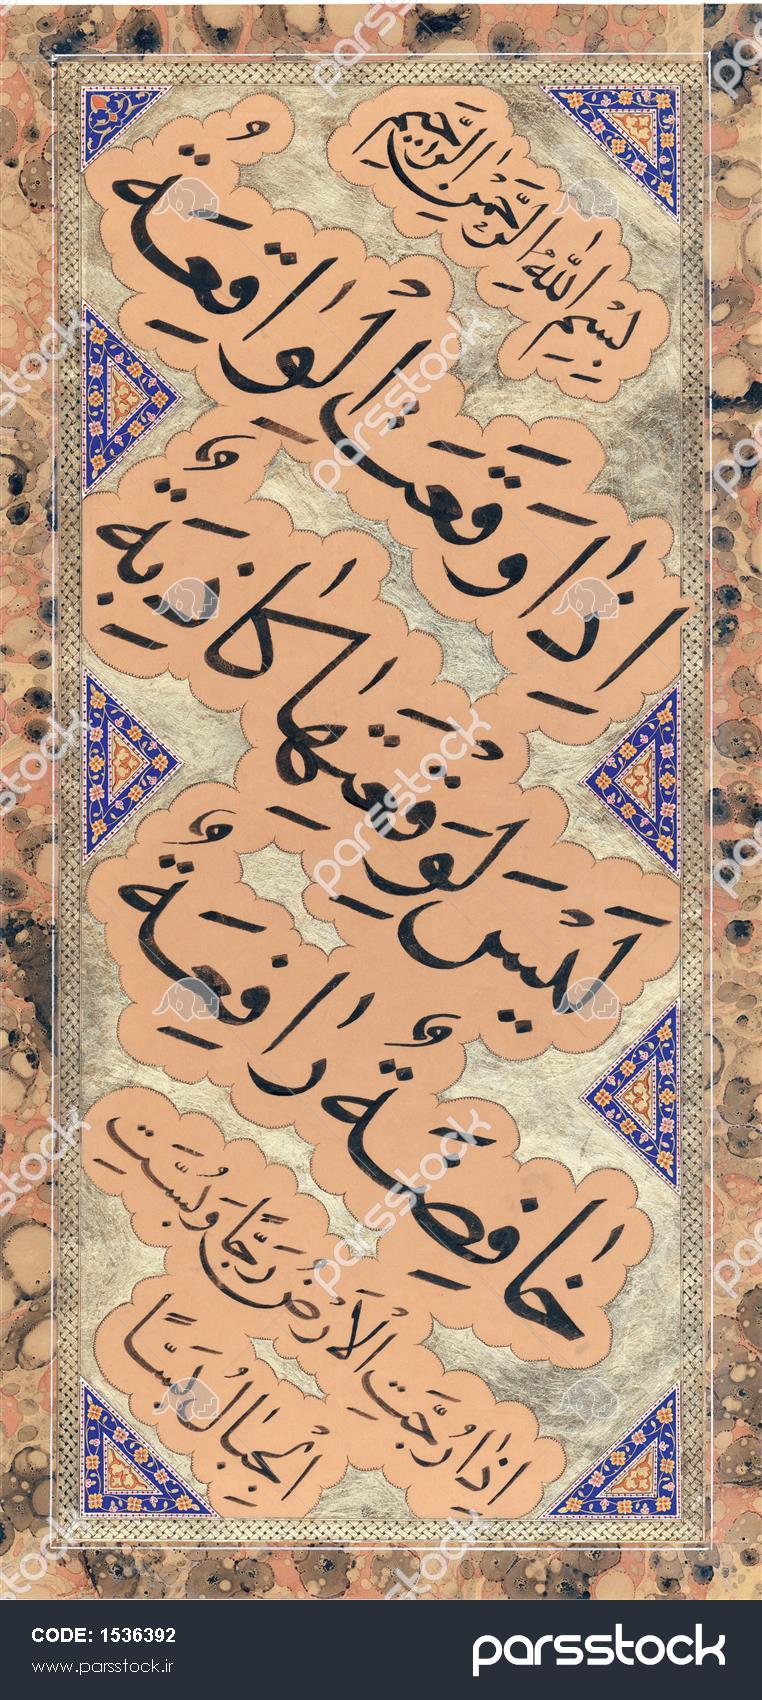 بِسْمِ اللّٰهِ الرَّحْمٰنِ الرَّحِيمِ
اِذَا وَقَعَتِ الْوَاقِعَةُ
لَيْسَ لِوَقْعَتِهَا كَاذِبَةٌ
خَافِضَةٌ رَافِعَةٌ
اِذَا رُجَّتِ الْاَرْضُ رَجًّا وَبُسَّتِ
الْجِبَالُ بَسًّا
CODE: 1536392
www.parsstock.ir
parsstock